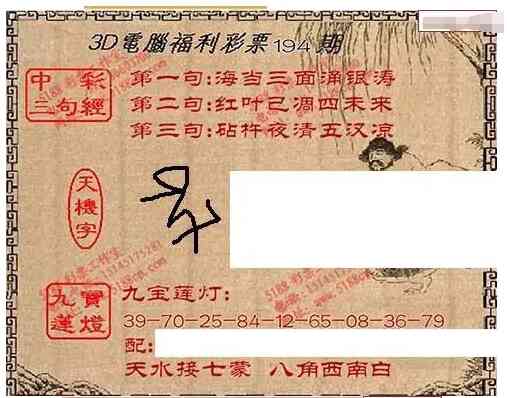 3D電腦福利彩票194期
中彩
三句經
第一句:海当三面涌银涛
第二句:红叶已凋四未来
第三句:砧杵夜清五汉凉
天機字
九寶
蓮燈
九宝莲灯:
39-70-25-84-12-65-08-36-79
配:
天水接七蒙 八角西南白